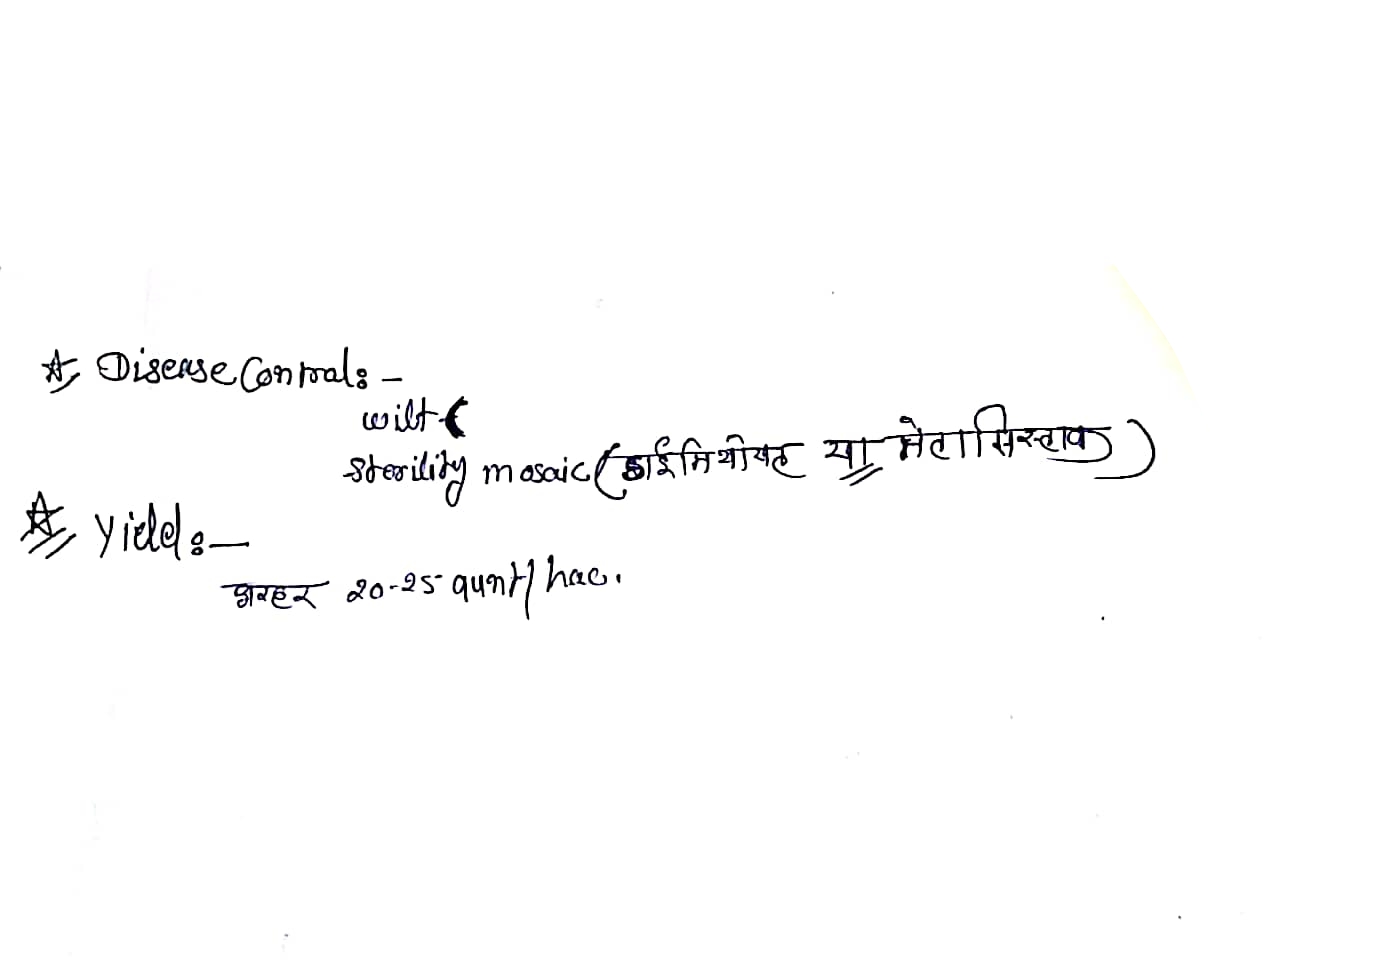 ☆ Disease Control:-
wilt (
Sterility mosaic (डाईमिथोयट या मेटासिस्टाक)
☆ Yield:-
अरहर 20-25 qunt/hac.